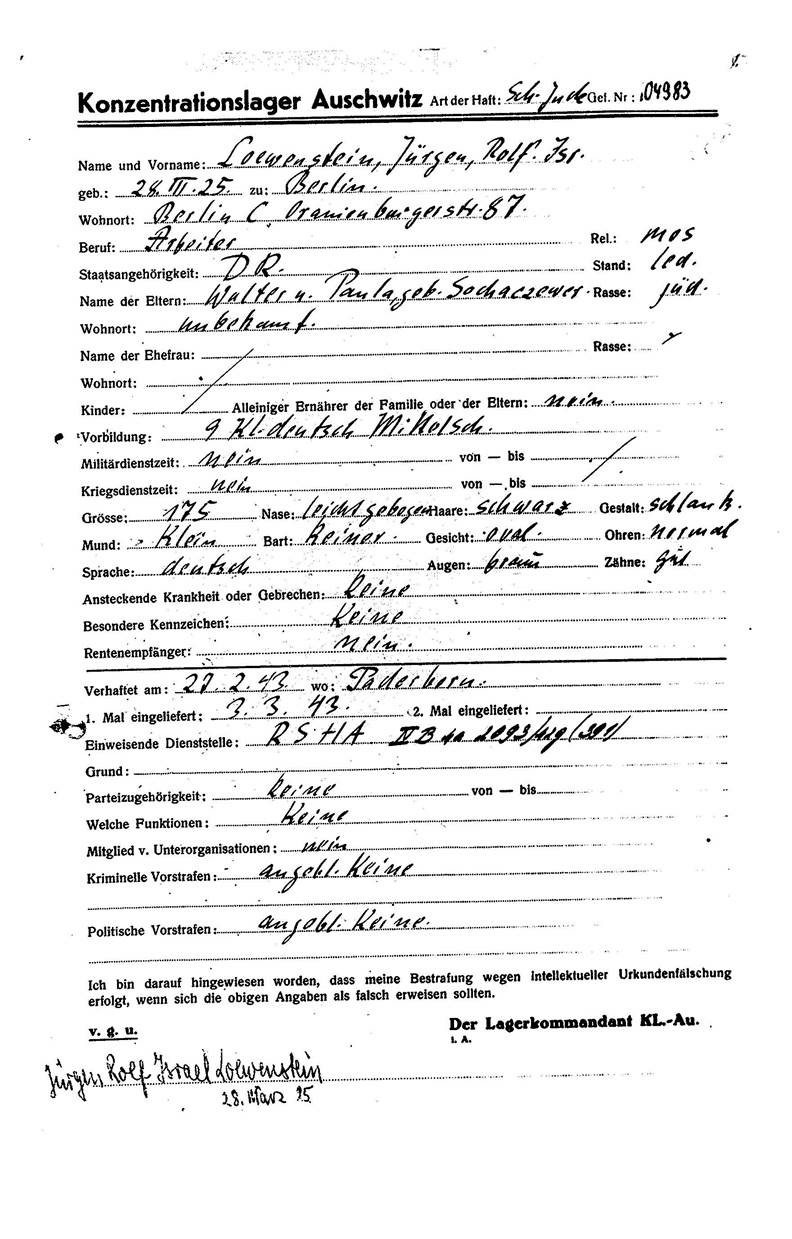 Konzentrationslager Auschwitz Art der Haft: Sch. Jude Gef. Nr.: 104983
Name und Vorname: Loewenstein, Jürgen, Rolf. Isr.
geb.: 28. III. 25. zu: Berlin.
Wohnort: Berlin C, Oranienburgerstr. 87.
Beruf: Arbeiter Rel.: mos
Staatsangehörigkeit: DR. Stand: led.
Name der Eltern: Walter u. Paula, geb. Sochaczewer. Rasse: jüd.
Wohnort: unbekannt.
Name der Ehefrau: Rasse:
Wohnort:
Kinder: Alleiniger Ernährer der Familie oder der Eltern: nein.
Vorbildung: 9 Kl. deutsch Mittelsch.
Militärdienstzeit: nein von — bis
Kriegsdienstzeit: nein von — bis
Grösse: 175 Nase: leicht gebogen Haare: schwarz Gestalt: schlank.
Mund: Klein Bart: Keiner. Gesicht: oval. Ohren: normal
Sprache: deutsch Augen: braun Zähne: gut
Ansteckende Krankheit oder Gebrechen: Keine
Besondere Kennzeichen: Keine
Rentenempfänger: nein.
Verhaftet am: 27.2.43 wo: Paderborn.
1. Mal eingeliefert: 3.3.43. 2. Mal eingeliefert:
Einweisende Dienststelle: RSHA IV B 4a
Grund:
Parteizugehörigkeit: Keine von — bis
Welche Funktionen: Keine
Mitglied v. Unterorganisationen: nein
Kriminelle Vorstrafen: angebl. Keine
Politische Vorstrafen: angebl. Keine.
Ich bin darauf hingewiesen worden, dass meine Bestrafung wegen intellektueller Urkundenfälschung
erfolgt, wenn sich die obigen Angaben als falsch erweisen sollten.
v. g. u.
Der Lagerkommandant KL.-Au.
i. A.
Jürgen Rolf Israel Loewenstein
28. März 25